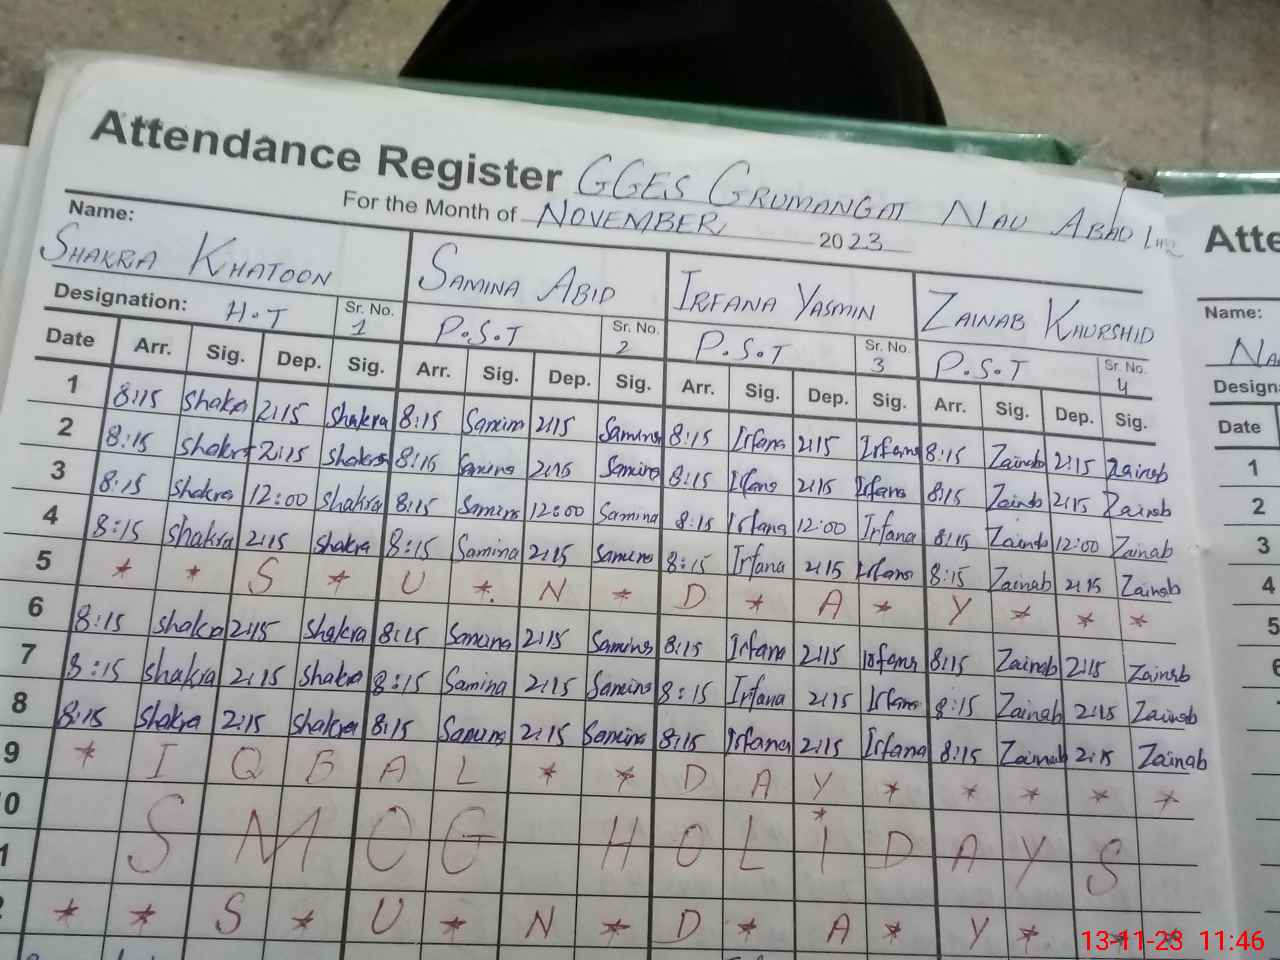 Attendance Register GGES GRUMANGAT NAU ABAD
For the Month of NOVEMBER 2023
Name:
SHAKRA KHATOON SAMINA ABID IRFANA YASMIN ZAINAB KHURSHID
Designation: H.T Sr. No. 1 P.S.T Sr. No. 2 P.S.T Sr. No. 3 P.S.T Sr. No. 4
Date Arr. Sig. Dep. Sig. Arr. Sig. Dep. Sig. Arr. Sig. Dep. Sig. Arr. Sig. Dep. Sig.
1 8:15 Shakra 2:15 Shakra 8:15 Samina 2:15 Samina 8:15 Irfana 2:15 Irfana 8:15 Zainab 2:15 Zainab
2 8:15 Shakra 2:15 Shakra 8:15 Samina 2:15 Samina 8:15 Irfana 2:15 Irfana 8:15 Zainab 2:15 Zainab
3 8:15 Shakra 12:00 Shakra 8:15 Samina 12:00 Samina 8:15 Irfana 12:00 Irfana 8:15 Zainab 12:00 Zainab
4 8:15 Shakra 2:15 Shakra 8:15 Samina 2:15 Samina 8:15 Irfana 2:15 Irfana 8:15 Zainab 2:15 Zainab
5 * * S * U * N * D * A * Y * * *
6 8:15 Shakra 2:15 Shakra 8:15 Samina 2:15 Samina 8:15 Irfana 2:15 Irfana 8:15 Zainab 2:15 Zainab
7 8:15 Shakra 2:15 Shakra 8:15 Samina 2:15 Samina 8:15 Irfana 2:15 Irfana 8:15 Zainab 2:15 Zainab
8 8:15 Shakra 2:15 Shakra 8:15 Samina 2:15 Samina 8:15 Irfana 2:15 Irfana 8:15 Zainab 2:15 Zainab
9 * I Q B A L * * D A Y * * * * *
0
1 S M O G H O L I D A Y S
* * S * U * N * D * A * Y * * *
Atte
Name:
Na
Design
Date
1
2
3
4
5
6
13-11-23 11:46